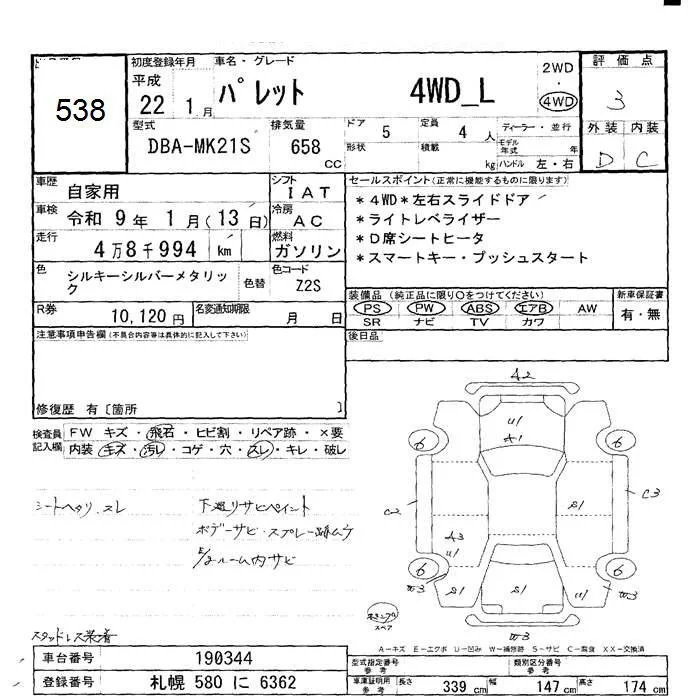 538
初度登録年月
平成
22 1月
車名・グレード
パレット 4WD_L
2WD
・
4WD
評価点
3
外装 内装
D C
型式
DBA-MK21S
排気量
658
CC
ドア
5
定員
4 人
形状
積載
kg
ディーラー・並行
モデル
年式
年
ハンドル 左・右
車歴
自家用
シフト
IAT
車検
令和 9年 1月(13日)
冷房
AC
走行
4万8千994 km
燃料
ガソリン
色
シルキーシルバーメタリッ
ク
色替
色コード
Z2S
R券
10,120円
名変通知期限
月 日
セールスポイント(正常に機能するものに限ります)
*4WD*左右スライドドア
*ライトレベライザー
*D席シートヒータ
*スマートキー・プッシュスタート
装備品(純正品に限り○をつけてください)
PS PW ABS エアB AW
SR ナビ TV カワ
新車保証書
有・無
後日品
注意事項申告欄(不具合内容等は具体的に記入して下さい)
修復歴 有〔箇所 〕
検査員
記入欄
FW キズ・飛石・ヒビ割・リペア跡・×要
内装 キズ・汚レ・コゲ・穴・スレ・キレ・破レ
シートヘタリ.スレ
下廻リサビペイント
ボデーサビ・スプレー跡ムラ
E/gルーム内サビ
スタッドレス装着
A2
U1
A1
6
6
C2
C3
S1
A3
U1
6
6
W3
W3
S1
S1
U1
W3
スペア
A-キズ E-エクボ U-凹み W-補修跡 S-サビ C-腐食 XX-交換済
車台番号
190344
登録番号
札幌 580 に 6362
型式指定番号
参考
類別区分番号
参考
車庫証明用
参考
長さ
339 cm
幅
147 cm
高さ
174 cm